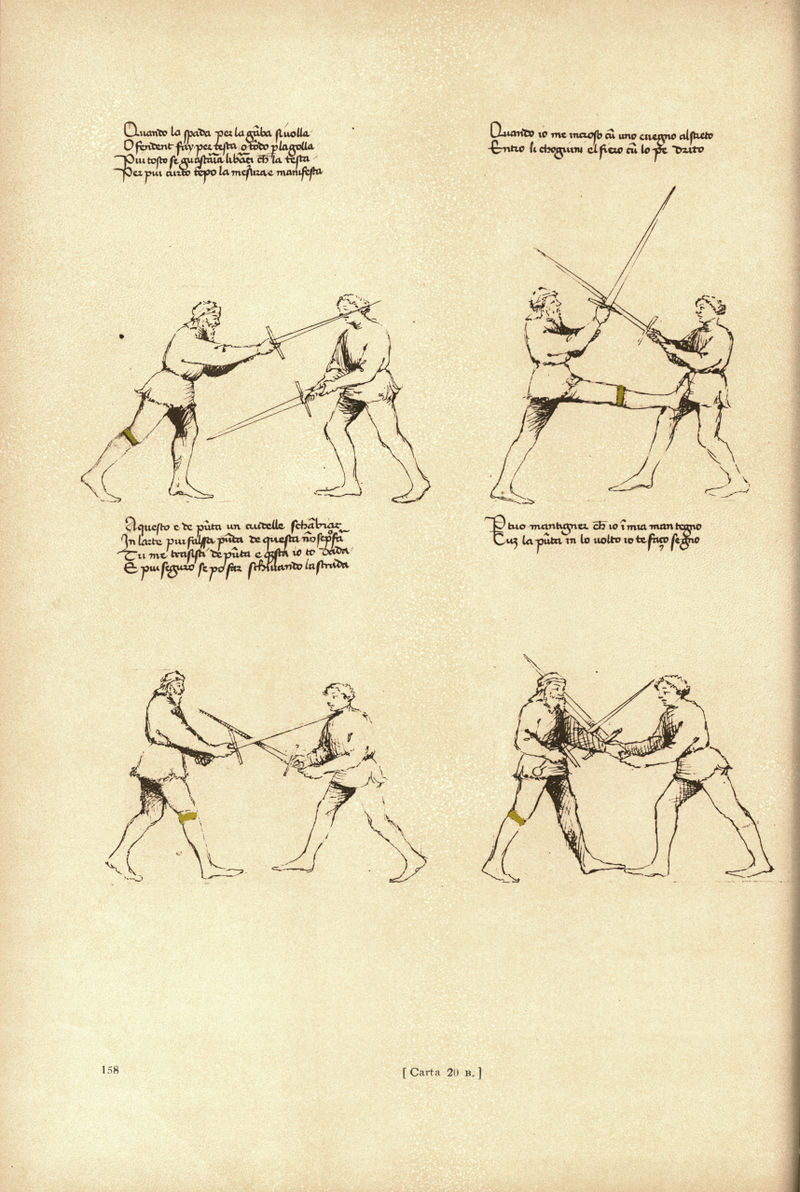 Quando la spada per la gāba si uolla
O fendent fay per testa o todo p la golla
Piu tosto se guastaria li braci ch̄ la testa
Per piu curto tēpo la mesura e manifesta
Quando io me incroso cū uno cuegno al streto
Entro li chogiuni el fiero cū lo pe drito
Aquesto e de pūta un crudelle schābiar
In larte piu falssa pūta de questa nō se pò far
Tu me trasisti de pūta e q̄sta io to dada
E piu seguro se po far schiuando la strada
P tuo mantigner ch̄ io ī mia man tegno
Cuz la pūta in lo uolto io te faço segno
158
[ Carta 20 B. ]